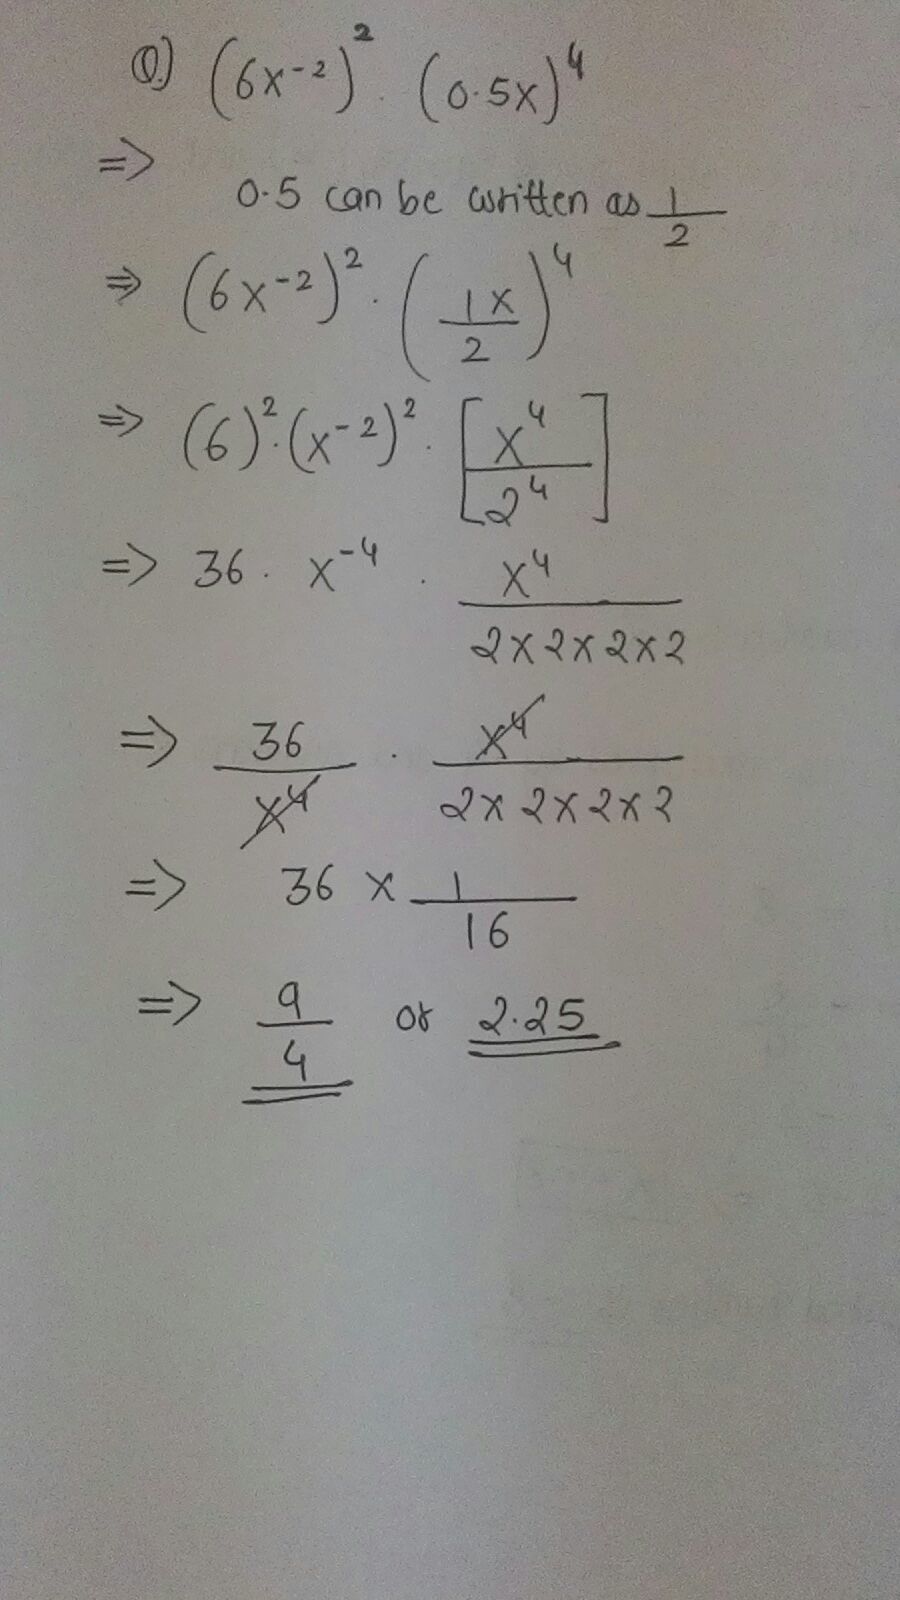 Q.) (6x⁻²)² · (0.5x)⁴
=>
0.5 can be written as 1/2
=> (6x⁻²)² · (1x/2)⁴
=> (6)² · (x⁻²)² · [x⁴/2⁴]
=> 36 · x⁻⁴ · x⁴/2×2×2×2
=> 36/x⁴ · x⁴/2×2×2×2
=> 36 × 1/16
=> 9/4 or 2.25